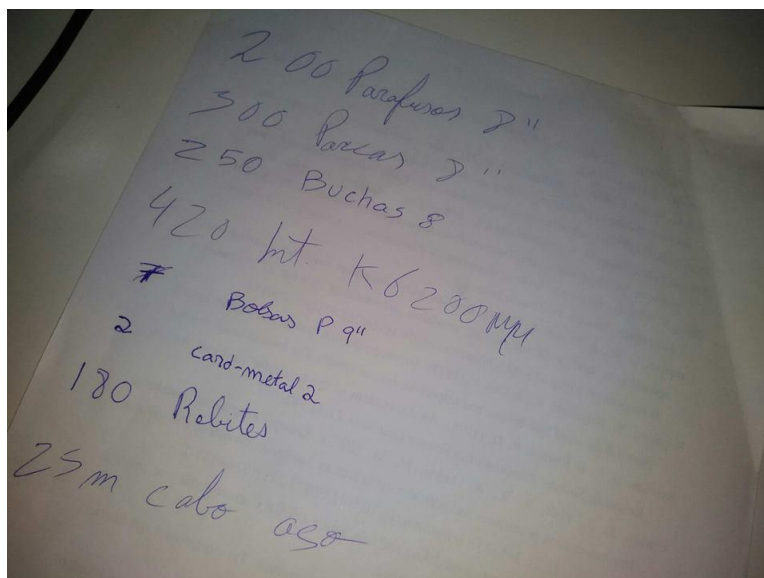 200 Parafusos 8"
300 Porcas 8"
250 Buchas 8
420 mt. K6200MM
7 Bolsas P 9"
2 card-metal 2
180 Rebites
25m cabo aso